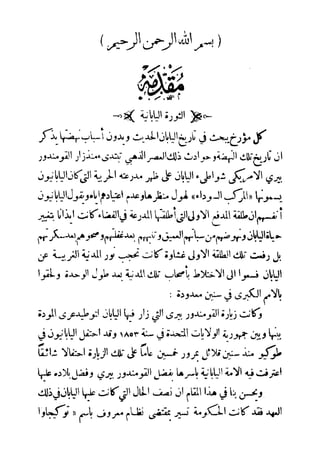 ( بسم الله الرحمن الرحيم )
مقدمة
الثورة اليابانية
كل مؤرخ يبحث في تاريخ اليابان الحديث ويدون أسباب نهضتها يذكر
ان تاريخ تلك النهضة وحوادث ذلك العصر الذهبي تبتدى منذ زار القومندور
بيري الاميركي شواطىء اليابان على ظهر مدرعته الحربية التي كان اليابانيون
يسمونها «المركب السوداء» لهول منظرها وعدم اعتيادهم اياه ويقول اليابانيون
أنفسهم ان طلقة المدفع الاولى التي أطلقتها المدرعة في الفضاء كانت ايذانا بتغيير
حياة اليابان ونهوضهم من سباتهم العميق وتنبيههم بعد غفلتهم وصحوهم بعد سكرتهم
بل رفعت تلك الطلقة الاولى غشاوة كانت تحجب نور المدنية الغربية عن
اليابان فسعوا الى الاختلاط بأصحاب تلك المدنية بعد طول الوحدة ولحقوا
بالامم الكبرى في سنين معدودة :
وكانت زيارة القومندور بيرى التى زار فيها اليابان لتوطيد عرى المودة
بينها وبين جمهورية الولايات المتحدة في سنة ١٨٥٣ وقد احتفل اليابانيون في
طوكيو منذ سنين قلائل بمرور خمسين عاما على تلك الزيارة احتفالا شائقا
اعترفت فيه الامة اليابانية باسرها بفضل القومندور بيري وفضل بلاده عليها
ويحسن بنا في هذا المقام ان نصف الحال التي كانت عليها اليابان في ذلك
العهد فقد كانت الحكومة تسير بمقتضى نظام معروف باسم «توكيجاوا